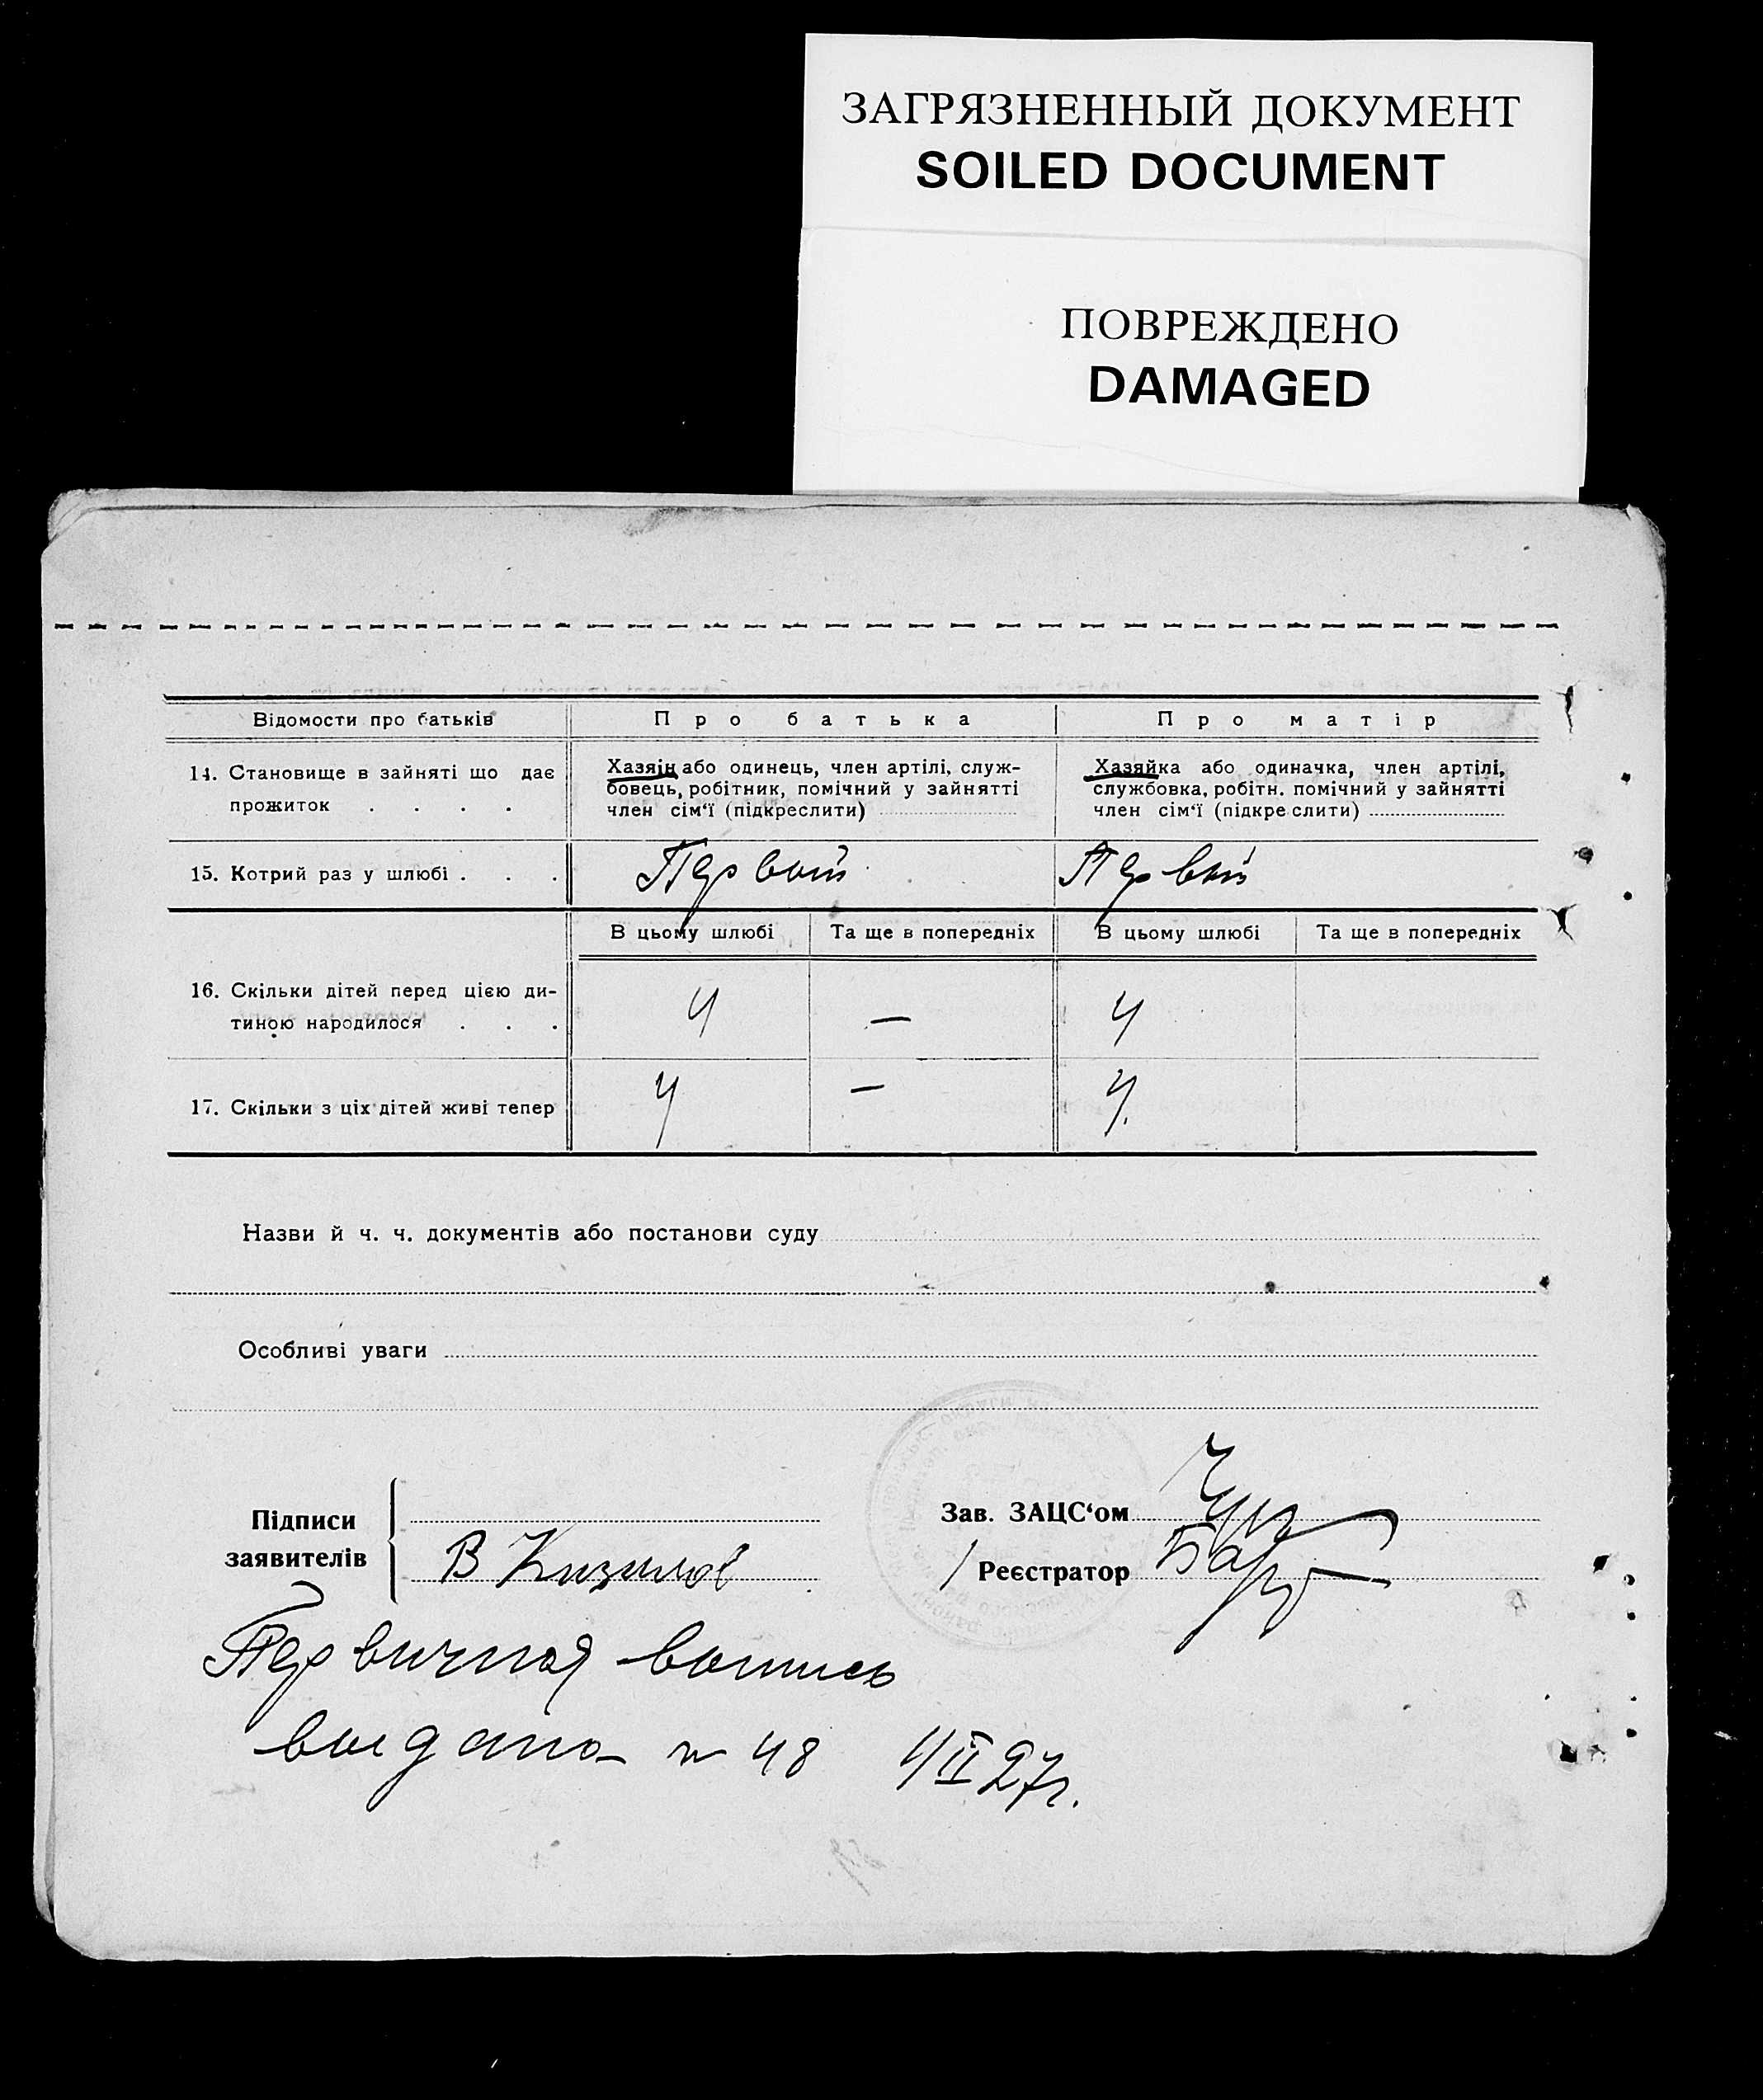 ЗАГРЯЗНЕННЫЙ ДОКУМЕНТ
SOILED DOCUMENT
ПОВРЕЖДЕНО
DAMAGED
Відомости про батьків
Про батька
Про матір
14. Становище в зайняті що дає
прожиток . . . .
Хазяїн або одинець, член артілі, служ-
бовець, робітник, помічний у зайнятті
член сім‘ї (підкреслити)
Хазяйка або одиначка, член артілі,
службовка, робітн. помічний у зайнятті
член сім‘ї (підкреслити)
15. Котрий раз у шлюбі . . .
Первый
Первый
В цьому шлюбі
Та ще в попередніх
В цьому шлюбі
Та ще в попередніх
16. Скільки дітей перед цією ди-
тиною народилося . . .
4
—
4
17. Скільки з ціх дітей живі тепер
4
—
4.
Назви й ч. ч. документів або постанови суду
Особливі уваги
Підписи
заявителів
В
Зав. ЗАЦС‘ом
/ Реєстратор
Первичная выпись
выдана № 48 1/II 27г.